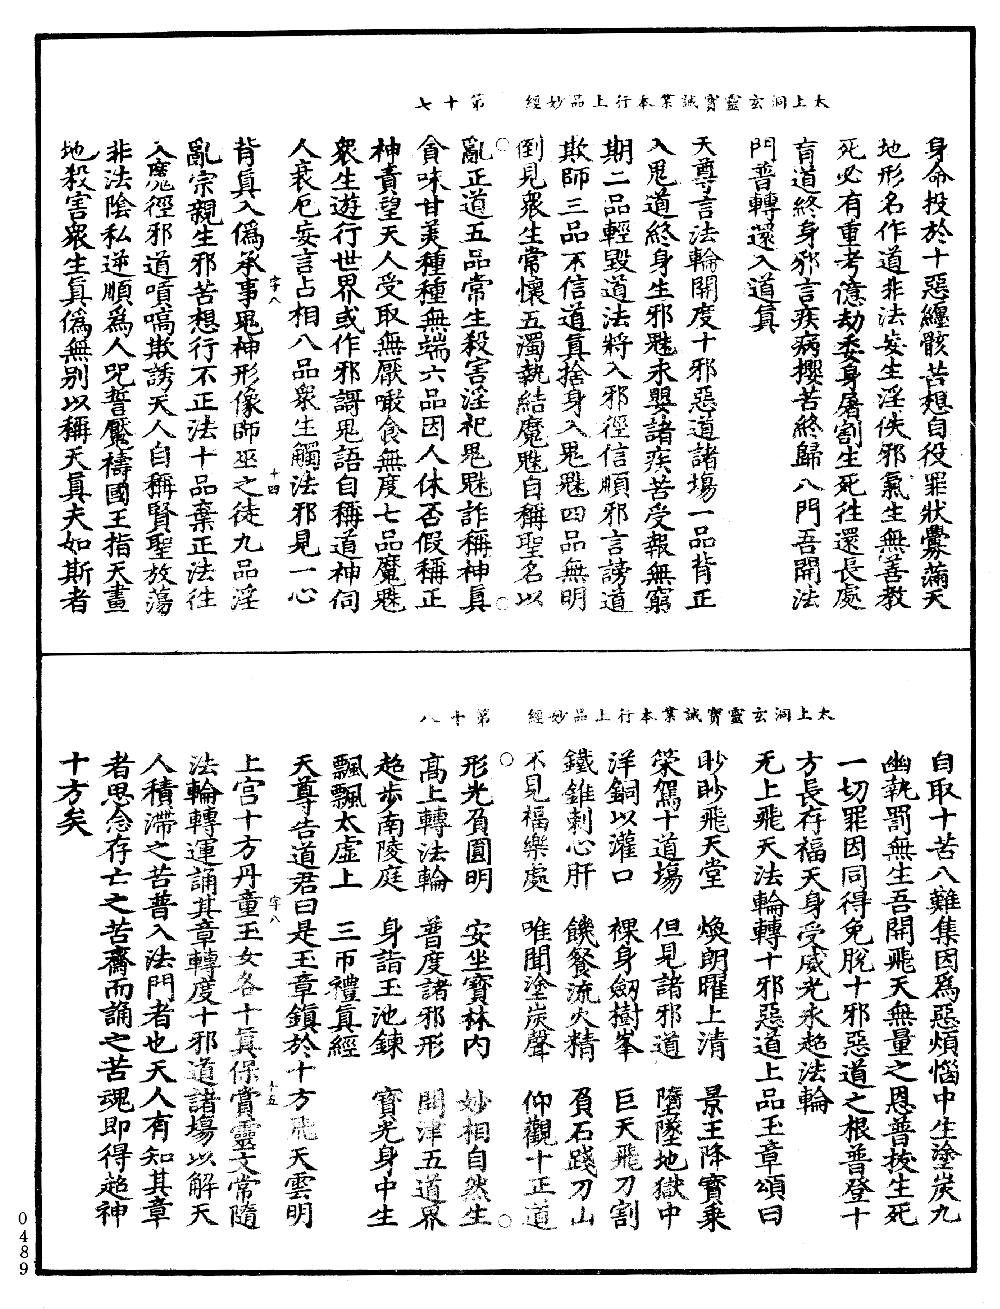 太上洞玄靈寶誡業本行上品妙經　第十七
身命投於十惡纏骸苦想自役罪狀釁滿天
地形名作道非法妄生淫佚邪氣生無善教
死必有重考億劫委身屠割生死往還長處
盲道終身邪言疾病攖苦終歸八門吾開法
門普轉還入道真
天尊言法輪開度十邪惡道諸場一品背正
入鬼道終身生邪魅永嬰諸疾苦受報無窮
期二品輕毀道法將入邪徑信順邪言謗道
欺師三品不信道真捨身入鬼魅四品無明
倒見眾生常懷五濁執結魔魅自稱聖名以
亂正道五品常生殺害淫祀鬼魅詐稱神真
貪味甘美種種無端六品因人休否假稱正
神責望天人受取無厭噉食無度七品魔魅
眾生遊行世界或作邪謌鬼語自稱道神伺
人衰厄妄言占相八品眾生觸法邪見一心
字八　十四
背真入偽承事鬼神形像師巫之徒九品淫
亂宗親生邪苦想行不正法十品棄正法往
入魔徑邪道嘳嗃欺誘天人自稱賢聖放蕩
非法陰私逆順為人咒誓魘禱國王指天畫
地殺害眾生真偽無別以稱天真夫如斯者
太上洞玄靈寶誡業本行上品妙經　第十八
自取十苦八難集因為惡煩惱中生塗炭九
幽執罰無生吾開飛天無量之恩普拔生死
一切罪因同得免脫十邪惡道之根普登十
方長存福天身受威光永超法輪
无上飛天法輪轉十邪惡道上品玉章頌曰
眇眇飛天堂　煥朗曜上清　景王降寶乘
榮駕十道場　但見諸邪道　墮墜地獄中
洋銅以灌口　裸身劒樹峯　巨天飛刀割
鐵錐刺心肝　饑餐流火精　負石踐刀山
不見福樂處　唯聞塗炭聲　仰觀十正道
形光負圓明　安坐寶林內　妙相自然生
高上轉法輪　普度諸邪形　開津五道界
超步南陵庭　身詣玉池鍊　寶光身中生
飄飄太虛上　三帀禮真經
天尊告道君曰是玉章鎮於十方飛天雲明
字八　十五
上宮十方丹童玉女各十真保賞靈文常隨
法輪轉運誦其章轉度十邪道諸場以解天
人積滯之苦普入法門者也天人有知其章
者思念存亡之苦齋而誦之苦魂即得超神
十方矣
0489